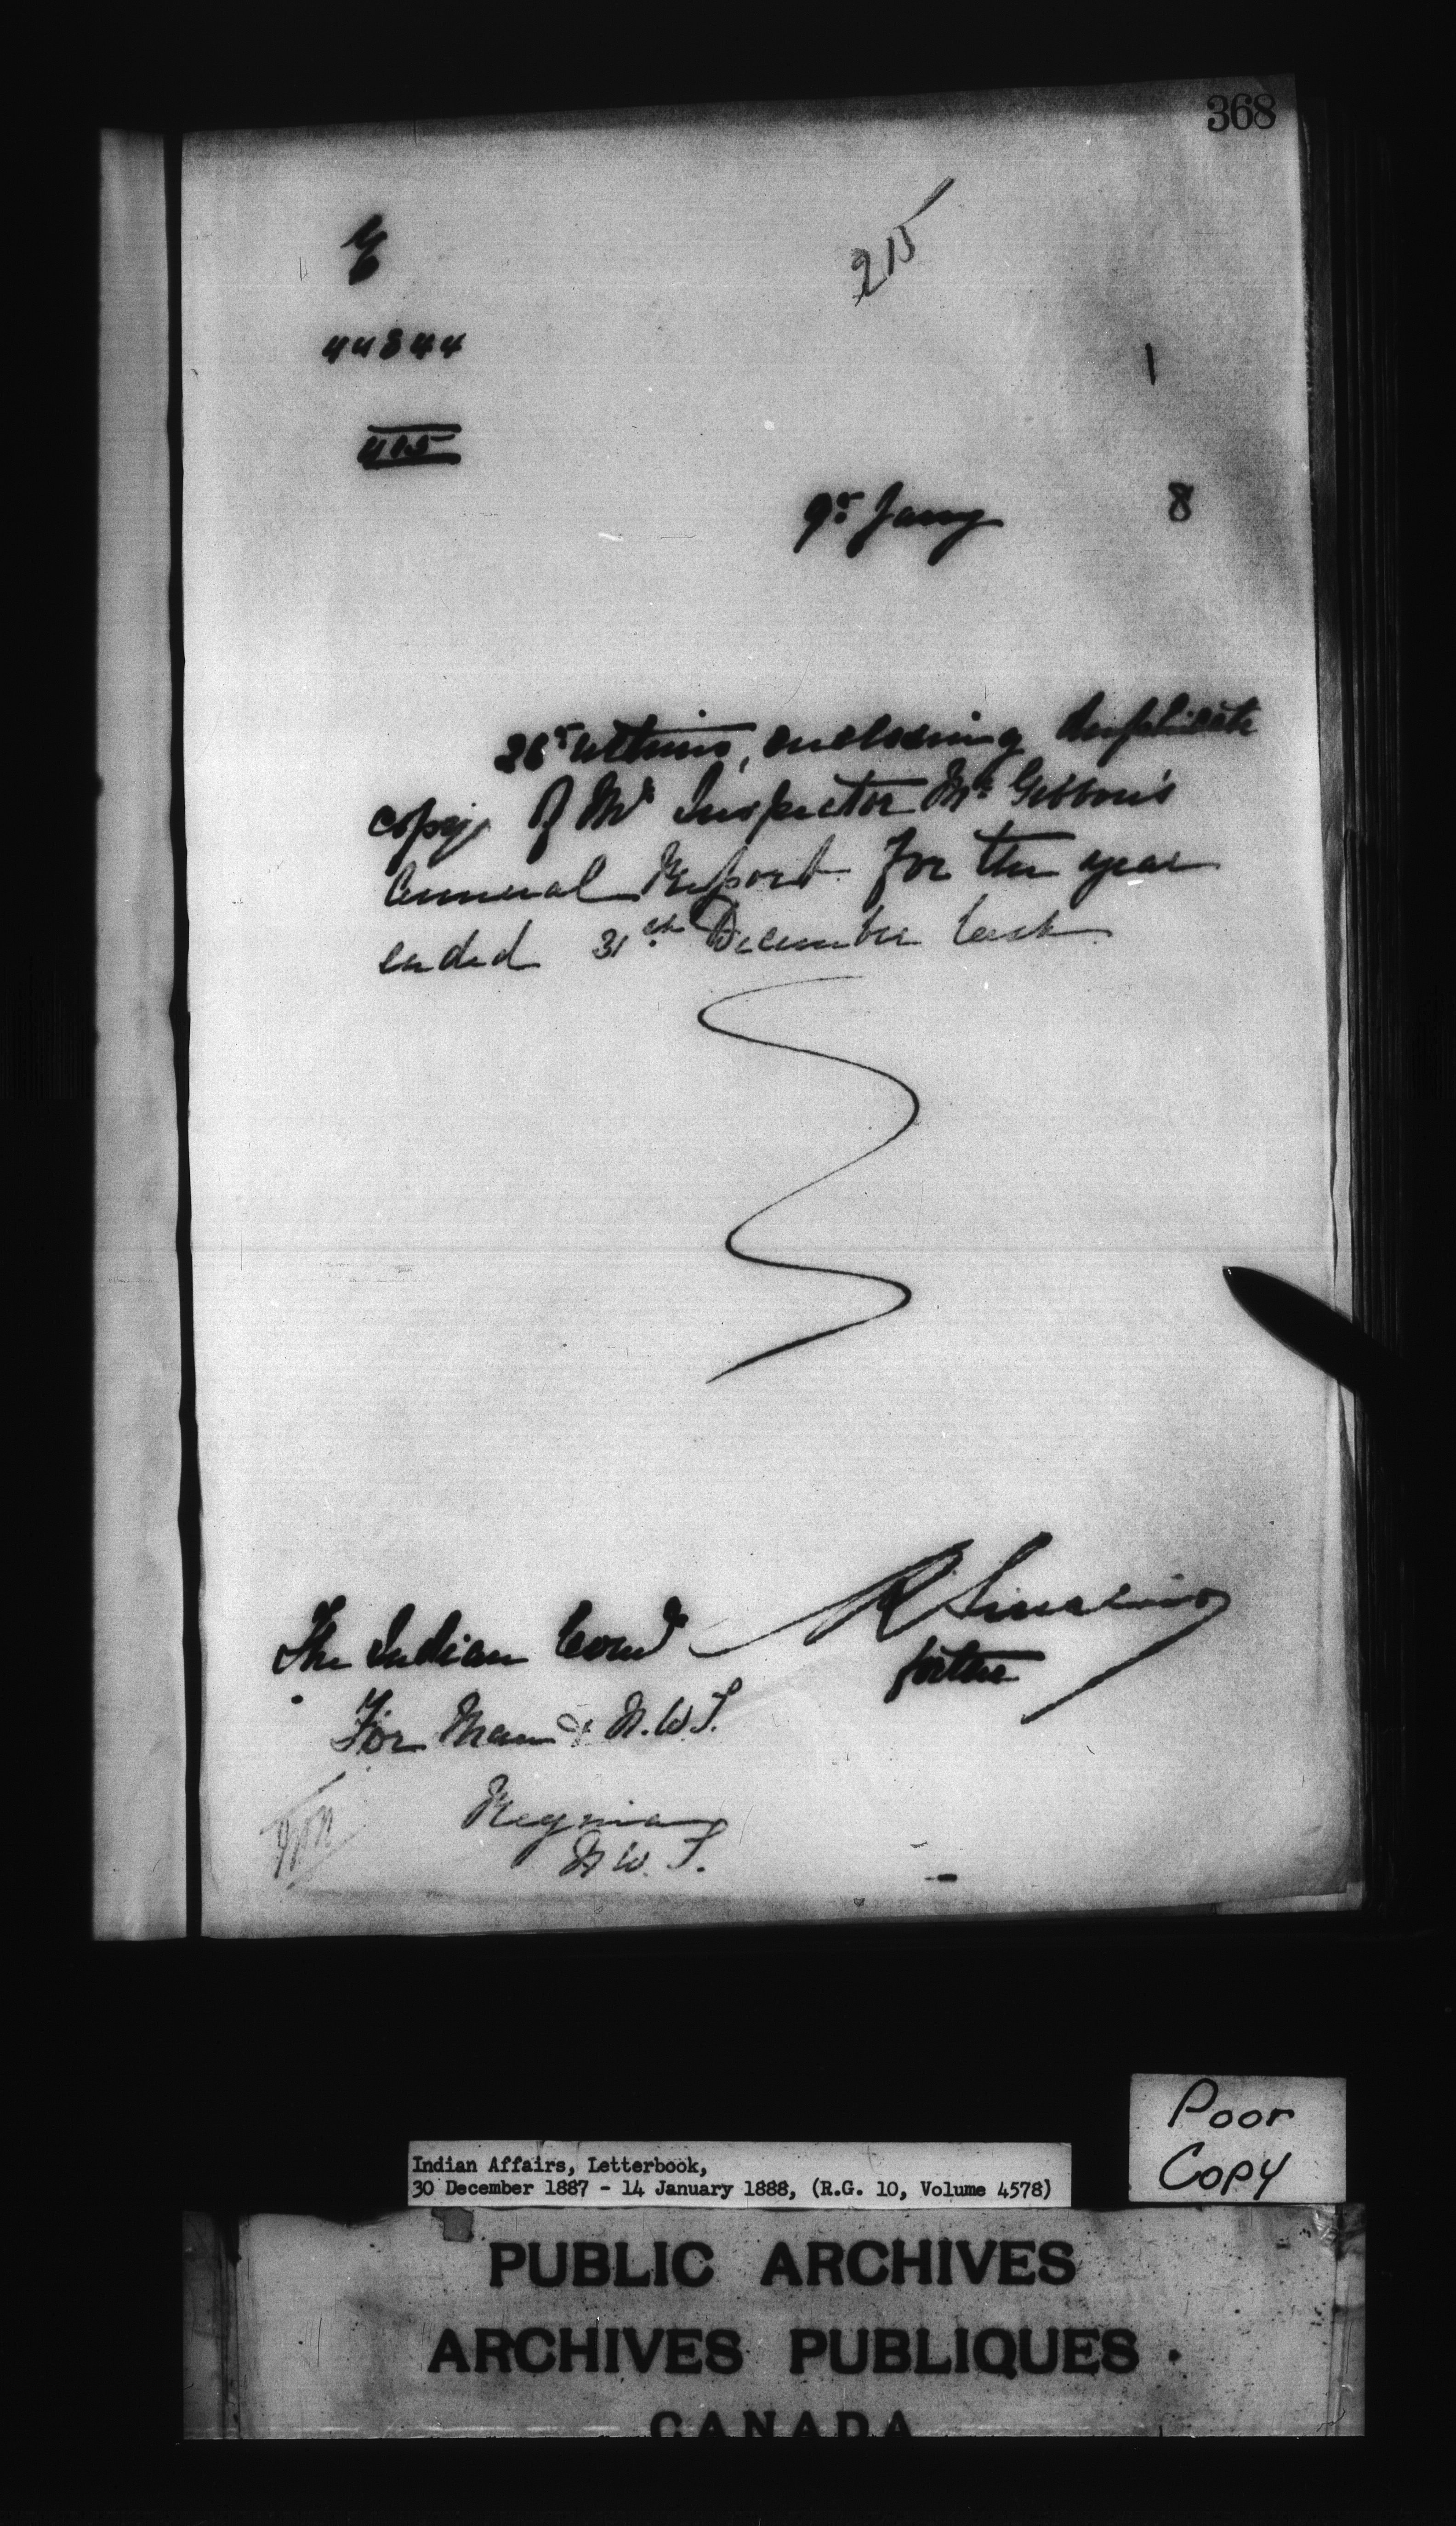 368
215
44844
1
415
9th Jany 8
26th ultimo, enclosing duplicate
copy of Mr Inspector McGibbon's
Annual Report for the year
ended 31st December last
R Sinclair
for the
The Indian Comr
For Man & N.W.T.
Regina
N.W.T.
Poor
Copy
Indian Affairs, Letterbook,
30 December 1887 - 14 January 1888, (R.G. 10, Volume 4578)
PUBLIC ARCHIVES
ARCHIVES PUBLIQUES
CANADA